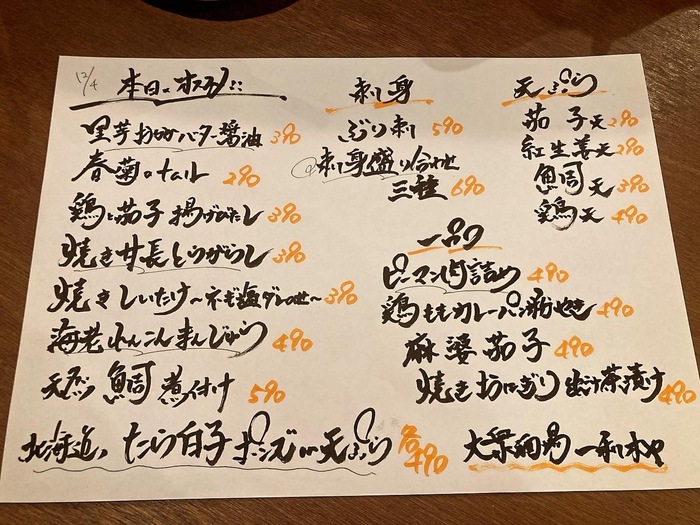 12/4
本日のオススメ
里芋おかかバター醤油 390
春菊のナムル 290
鶏と茄子揚げびたし 390
焼き甘長とうがらし 390
焼きしいたけ〜ネギ塩ダレのせ〜 390
海老れんこんまんじゅう 490
天然ブリ 煮付け 590
北海道 たら白子 ポンズor天ぷら 各490
刺身
ぶり刺 590
刺身盛り合わせ
三種 690
一品
ピーマン肉詰め 490
鶏ももカレーパン粉やき 490
麻婆茄子 490
焼きおにぎり出汁茶漬け 490
天ぷら
茄子天 290
紅生姜天 290
鯛天 390
鶏天 490
大衆酒場